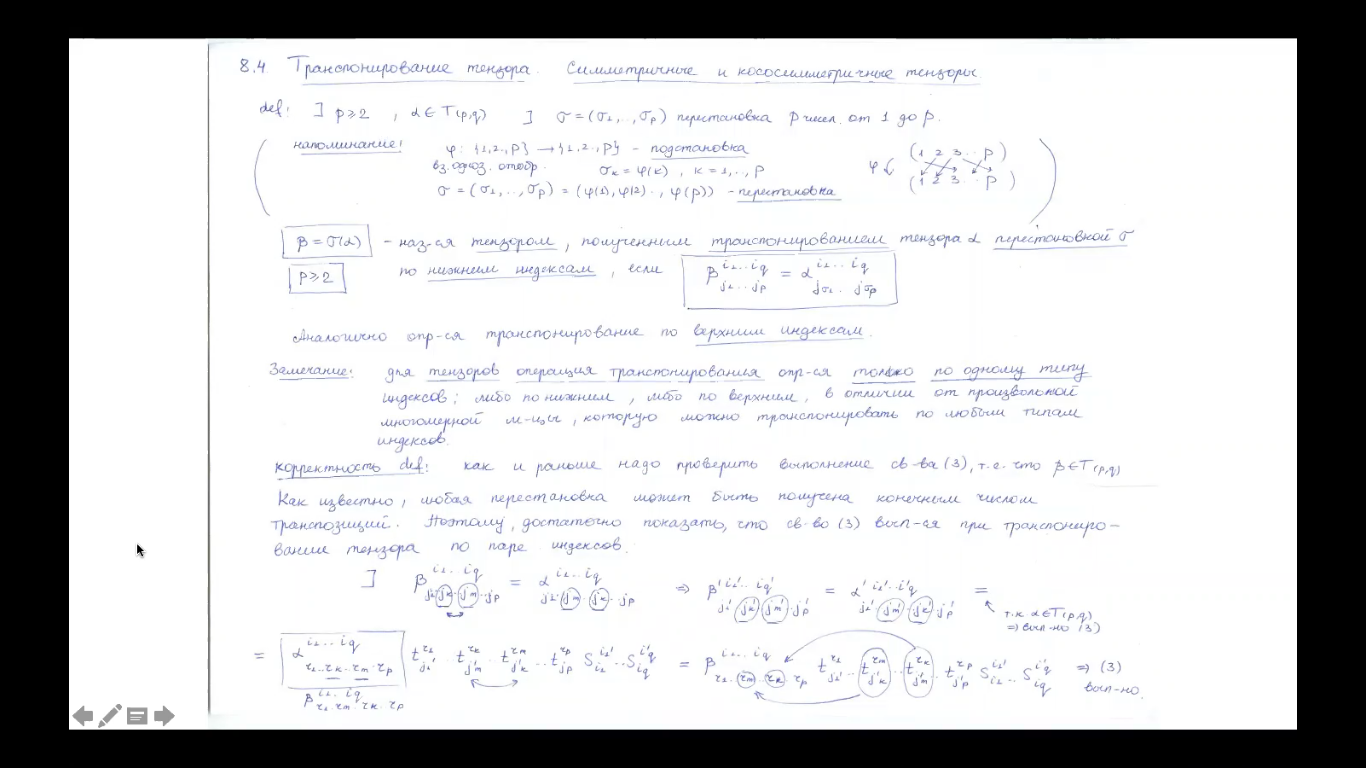 8.4 Транспонирование тензора. Симметричные и кососимметричные тензоры.
def: ] p≥2, α∈T(p,q) ] σ=(σ₁,..,σₚ) перестановка p чисел от 1 до p.
напоминание: φ: {1,2..,p} → {1,2..,p} - подстановка
вз. однозн. отобр. σₖ = φ(k), k=1,..,p
σ = (σ₁,..,σₚ) = (φ(1), φ(2).., φ(p)) - перестановка
φ (1 2 3 .. p)
(1 2 3 .. p)
β = σ(α) - наз-ся тензором, полученным транспонированием тензора α перестановкой σ
p≥2 по нижним индексам, если β^{i₁...i_q}_{j₁...j_p} = α^{i₁...i_q}_{j_{σ₁}...j_{σ_p}}
Аналогично опр-ся транспонирование по верхним индексам.
Замечание: для тензоров операция транспонирования опр-ся только по одному типу
индексов; либо по нижним, либо по верхним, в отличии от произвольной
многомерной м-цы, которую можно транспонировать по любым типам
индексов.
корректность def: как и раньше надо проверить выполнение св-ва (3), т.е. что β∈T(p,q)
Как известно, любая перестановка может быть получена конечным числом
транспозиций. Поэтому, достаточно показать, что св-во (3) вып-ся при транспониро-
вании тензора по паре индексов.
] β^{i₁...i_q}_{j₁..j_k..j_m..j_p} = α^{i₁...i_q}_{j₁..j_m..j_k..j_p} ⇒ β'^{i₁'...i_q'}_{j₁'..j_k'..j_m'..j_p'} = α'^{i₁'...i_q'}_{j₁'..j_m'..j_k'..j_p'} =
т.к. α∈T(p,q)
⇒ вып-но (3)
= α^{i₁...i_q}_{r₁..r_k..r_m..r_p} t^{r₁}_{j₁'}..t^{r_k}_{j_m'}..t^{r_m}_{j_k'}..t^{r_p}_{j_p'} S^{i₁'}_{i₁}..S^{i_q'}_{i_q} = β^{i₁...i_q}_{r₁..r_m..r_k..r_p} t^{r₁}_{j₁'}..t^{r_m}_{j_k'}..t^{r_k}_{j_m'}..t^{r_p}_{j_p'} S^{i₁'}_{i₁}..S^{i_q'}_{i_q} ⇒ (3)
вып-но.
β^{i₁...i_q}_{r₁..r_m..r_k..r_p}